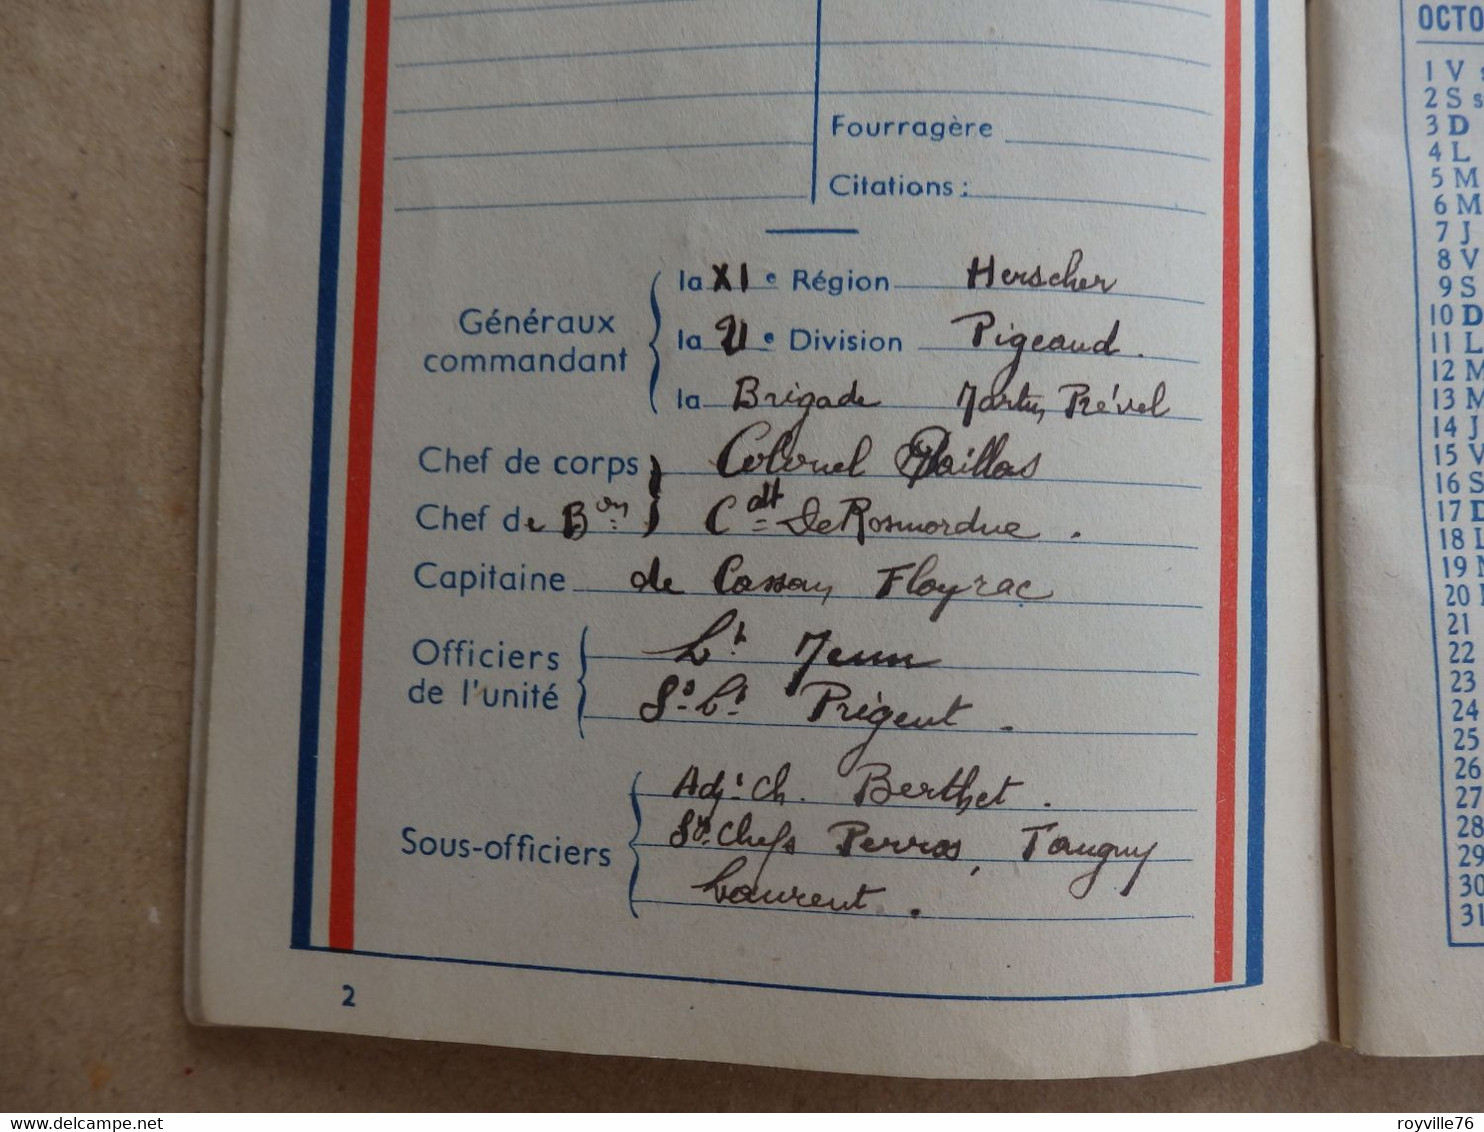 Fourragère
Citations :
Généraux commandant
la XIe Région Herscher
la 21e Division Pigeaud.
la Brigade Martin Prével
Chef de corps Colonel Paillas
Chef de Bon Cdt De Rosmorduc.
Capitaine de Cossou, Floyrac
Officiers de l'unité
Lt Jeun
Ss-Lt Prigent.
Sous-officiers
Adjt Ch. Berthet.
Sts Chefs Perros, Tanguy
Laurent.
2
OCTO
1 V s
2 S s
3 D
4 L
5 M
6 M
7 J
8 V
9 S
10 D
11 L
12 M
13 M
14 J
15 V
16 S
17 D
18 L
19 M
20
21
22
23
24
25
26
27
28
29
30
31
delcampe.net
royville76